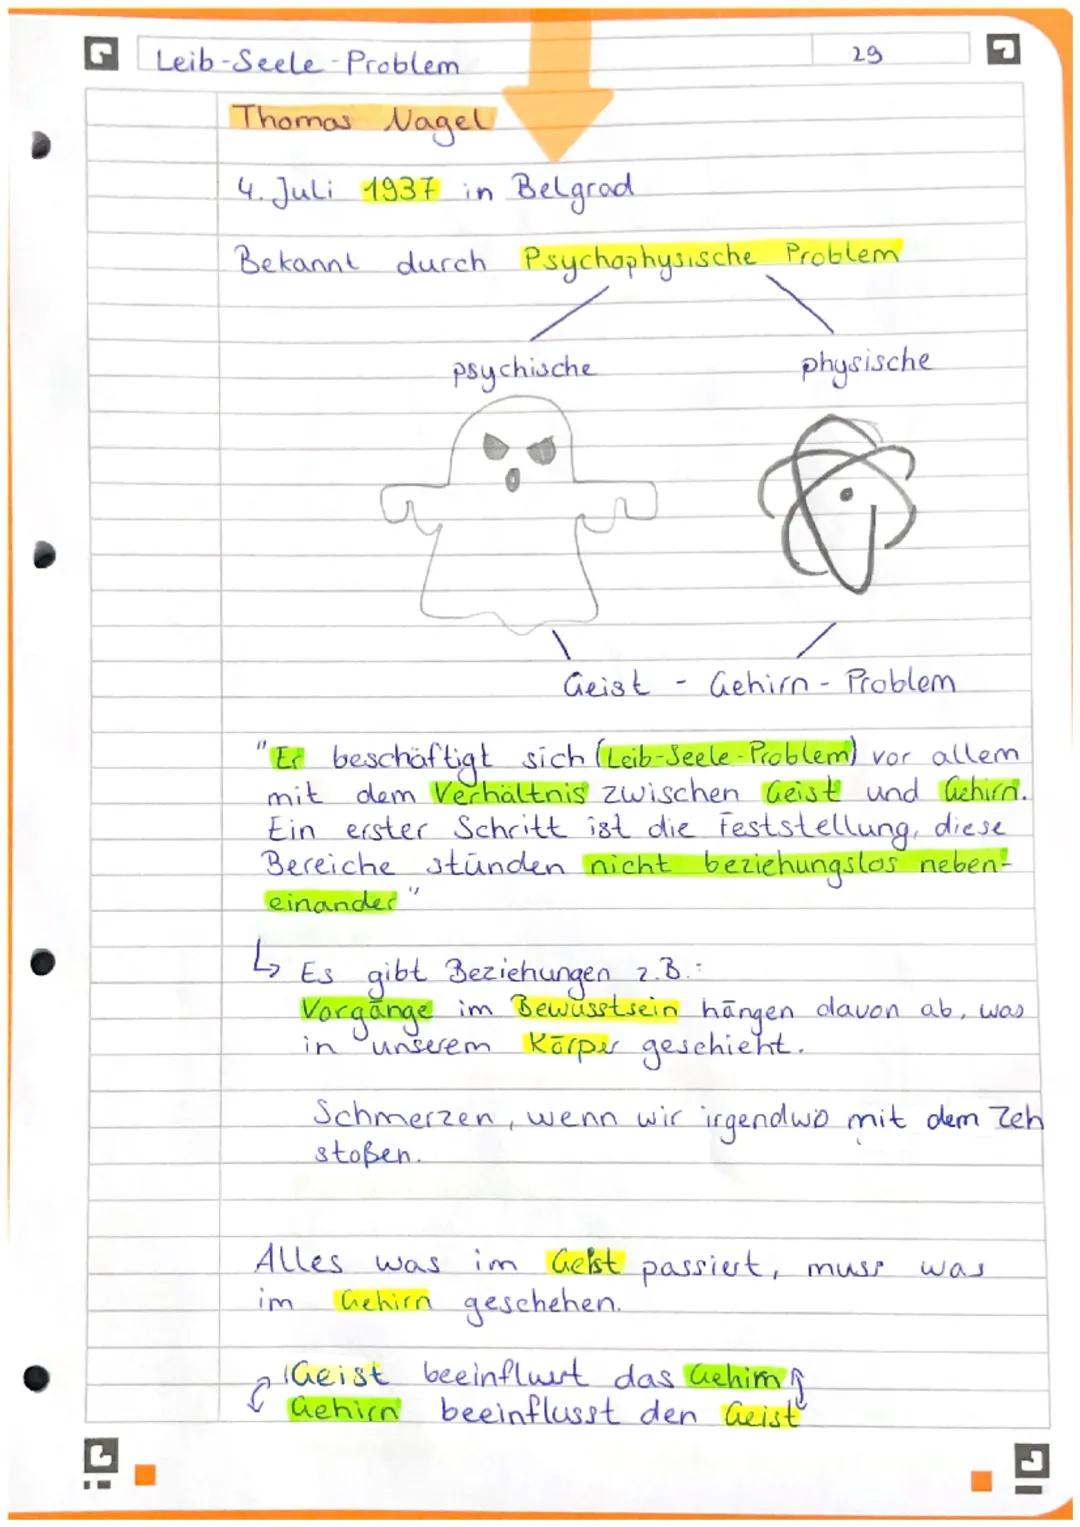 Leib-Seele-Problem
29
Thomas Nagel
4. Juli 1937 in Belgrad
Bekannt durch Psychophysische Problem
psychische physische
Geist - Gehirn - Problem
"Er beschäftigt sich (Leib-Seele-Problem) vor allem
mit dem Verhältnis zwischen Geist und Gehirn.
Ein erster Schritt ist die Feststellung, diese
Bereiche stünden nicht beziehungslos neben-
einander"
↳ Es gibt Beziehungen z.B.:
Vorgänge im Bewusstsein hängen davon ab, was
in unserem Körper geschieht.
Schmerzen, wenn wir irgendwo mit dem Zeh
stoßen.
Alles was im Geist passiert, muss was
im Gehirn geschehen.
Geist beeinflusst das Gehirn
Gehirn beeinflusst den Geist